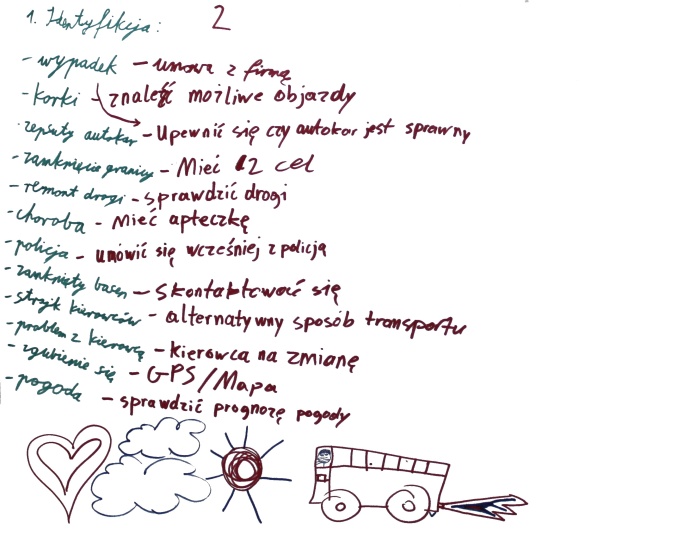 1. Identyfikcja: 2
- wypadek - umowa z firmą
- korki - znaleźć możliwe objazdy
- zepsuty autokar - Upewnić się czy autokar jest sprawny
- zamknięcie granicy - Mieć 2 cel
- remont drogi - sprawdzić drogi
- choroba - Mieć apteczkę
- policja - umówić się wcześniej z policją
- zamknięty basen - skontaktować się
- strajk kierowców - alternatywny sposób transportu
- problem z kierowcą - kierowca na zmianę
- zgubienie się - GPS/Mapa
- pogoda - sprawdzić prognozę pogody